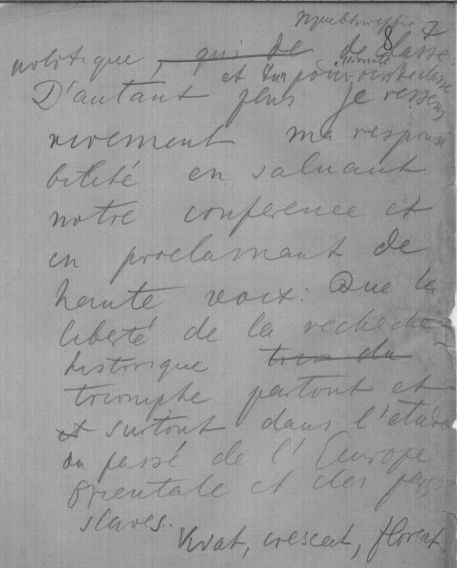 8 7
politique, qui de de classe.
et d'un pouvoir de classe
D'autant plus je ressens
vivement ma responsa
bilité en saluant
notre conference et
en proclamant de
haute voix: Que la
liberté de la recherche
historique
triomphe partout et
et surtout dans l'étude
du passé de l'Europe
Orientale et des pays
slaves.
Vivat, crescat, floreat.